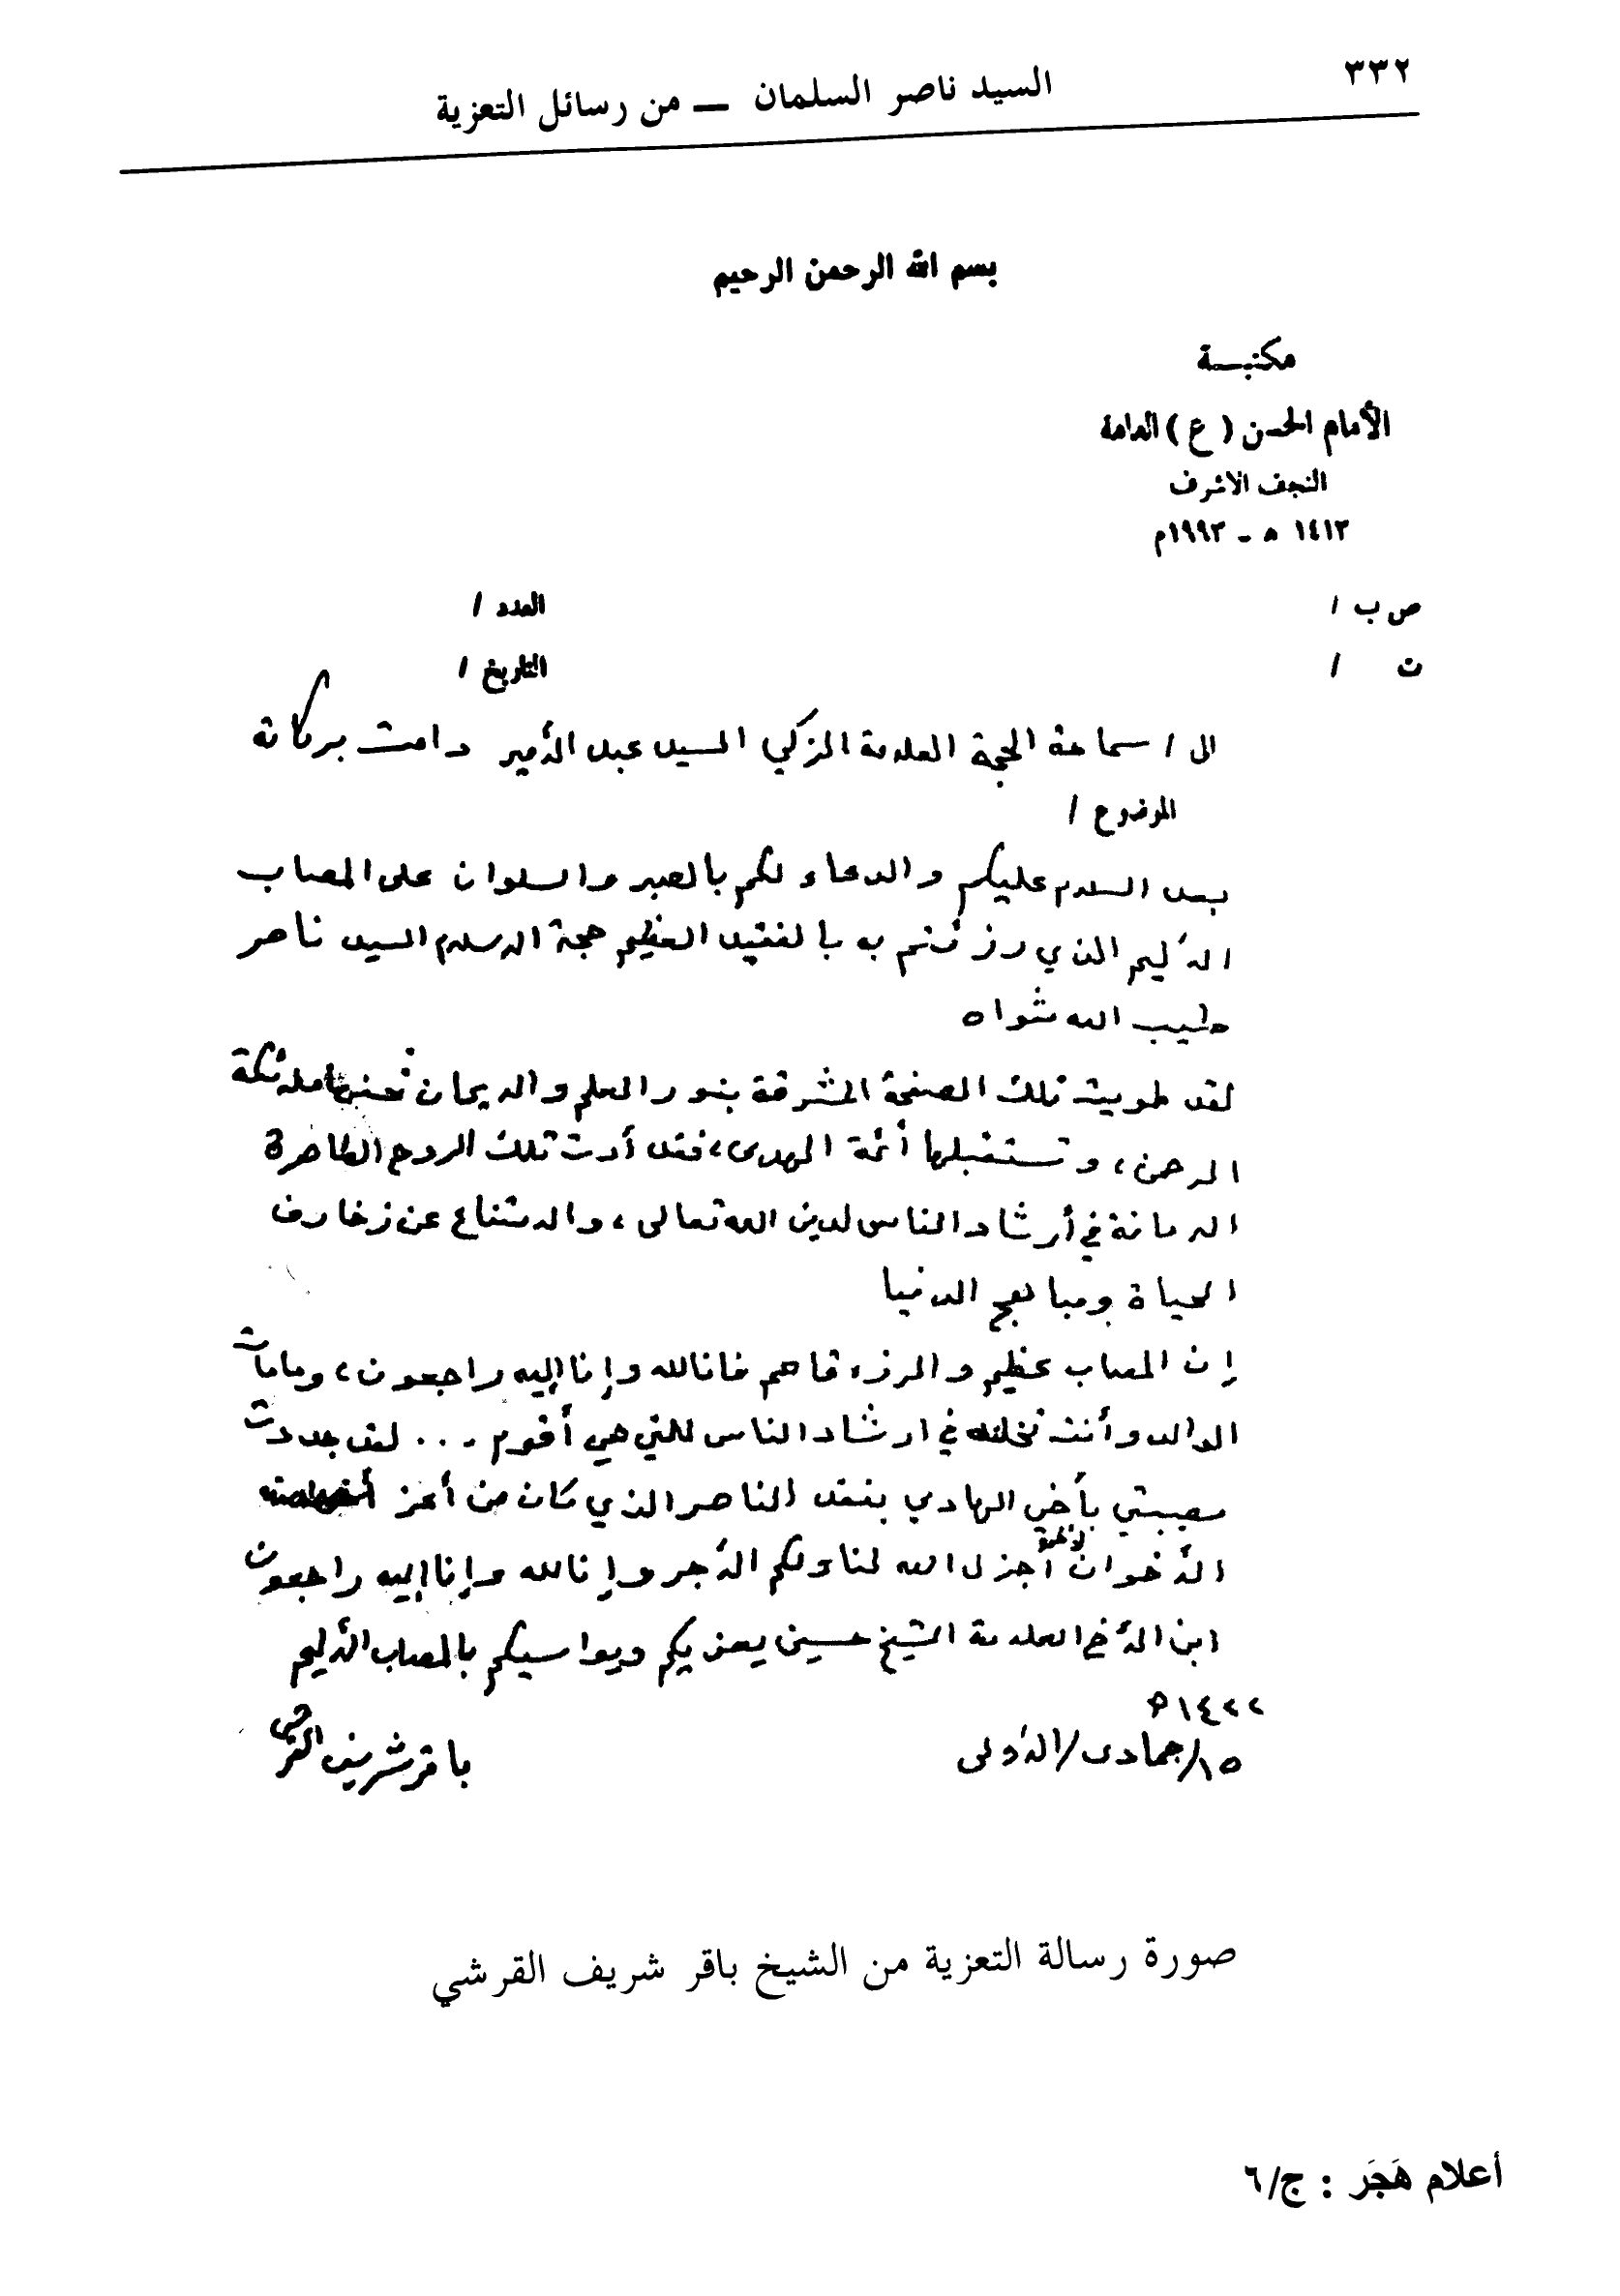 ٣٣٢
السيد ناصر السلمان — من رسائل التعزية
بسم الله الرحمن الرحيم
مكتبة
الأمام الحسن (ع) العامة
النجف الاشرف
١٤١٣ هـ - ١٩٩٣م
ص ب / العدد /
ت / التاريخ /
الى / سماحة الحجة العلامة الزكي السيد عبد الأمير دامت بركاته
الموضوع /
بعد السلام عليكم والدعاء لكم بالصبر والسلوان على المصاب
الأليم الذي رزئتم به بالفقيد العظيم حجة الاسلام السيد ناصر
طيب الله ثواه
لقد طويت تلك الصفحة المشرقة بنور العلم والايمان تحفها ملائكة
الرحمن، وتستقبلها أئمة الهدى، فقد أدت تلك الروح الطاهرة
الامانة في أرشاد الناس لدين الله تعالى، والامتناع عن زخارف
الحياة ومباهج الدنيا
إن المصاب عظيم والمرزء قاصم فانا لله وإنا إليه راجعون، وما مات
الوالد وأنت تخلفه في ارشاد الناس للتي هي أقوم ... لقد جددت
مصيبتي بأخي الهادي بفقد الناصر الذي كان من أعز
الأخوان لأخوة أجزل الله لنا ولكم الأجر وإنا لله وإنا إليه راجعون
ابن الأخ العلامة الشيخ حسين يعزيكم ويواسيكم بالمصاب الأليم
١٤٢٢ هـ
١٥/جمادى/الأولى باقر شريف القرشي
صورة رسالة التعزية من الشيخ باقر شريف القرشي
أعلام هَجَر : ج/٦